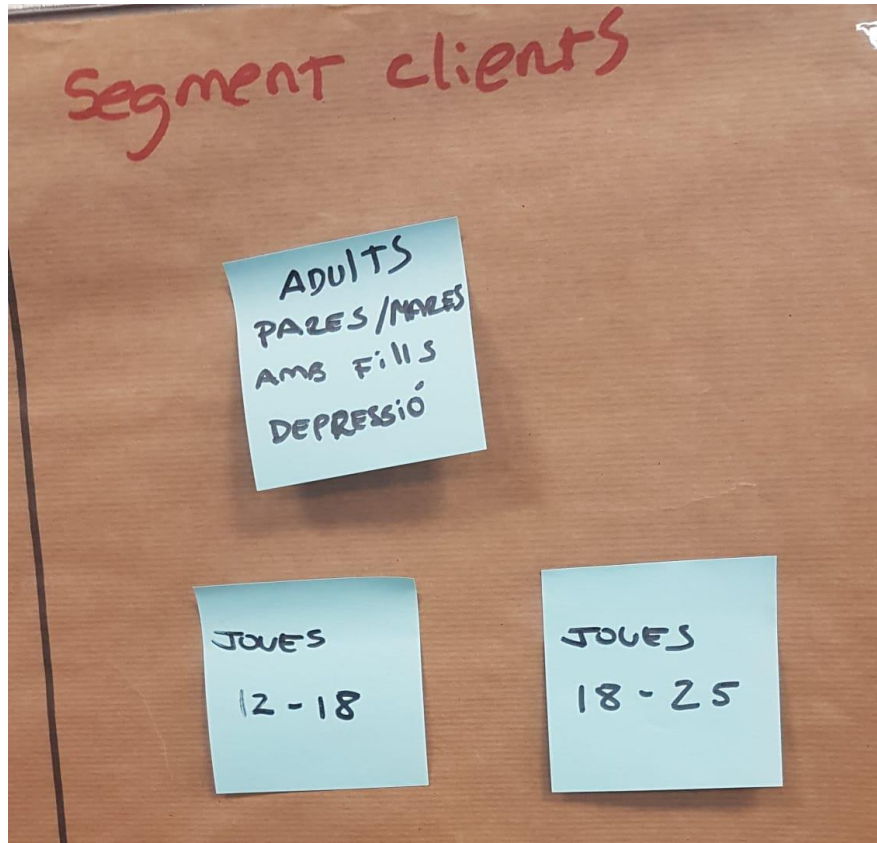 Segment clients
ADULTS
PARES/MARES
AMB FILLS
DEPRESSIÓ
JOVES
12-18
JOVES
18-25